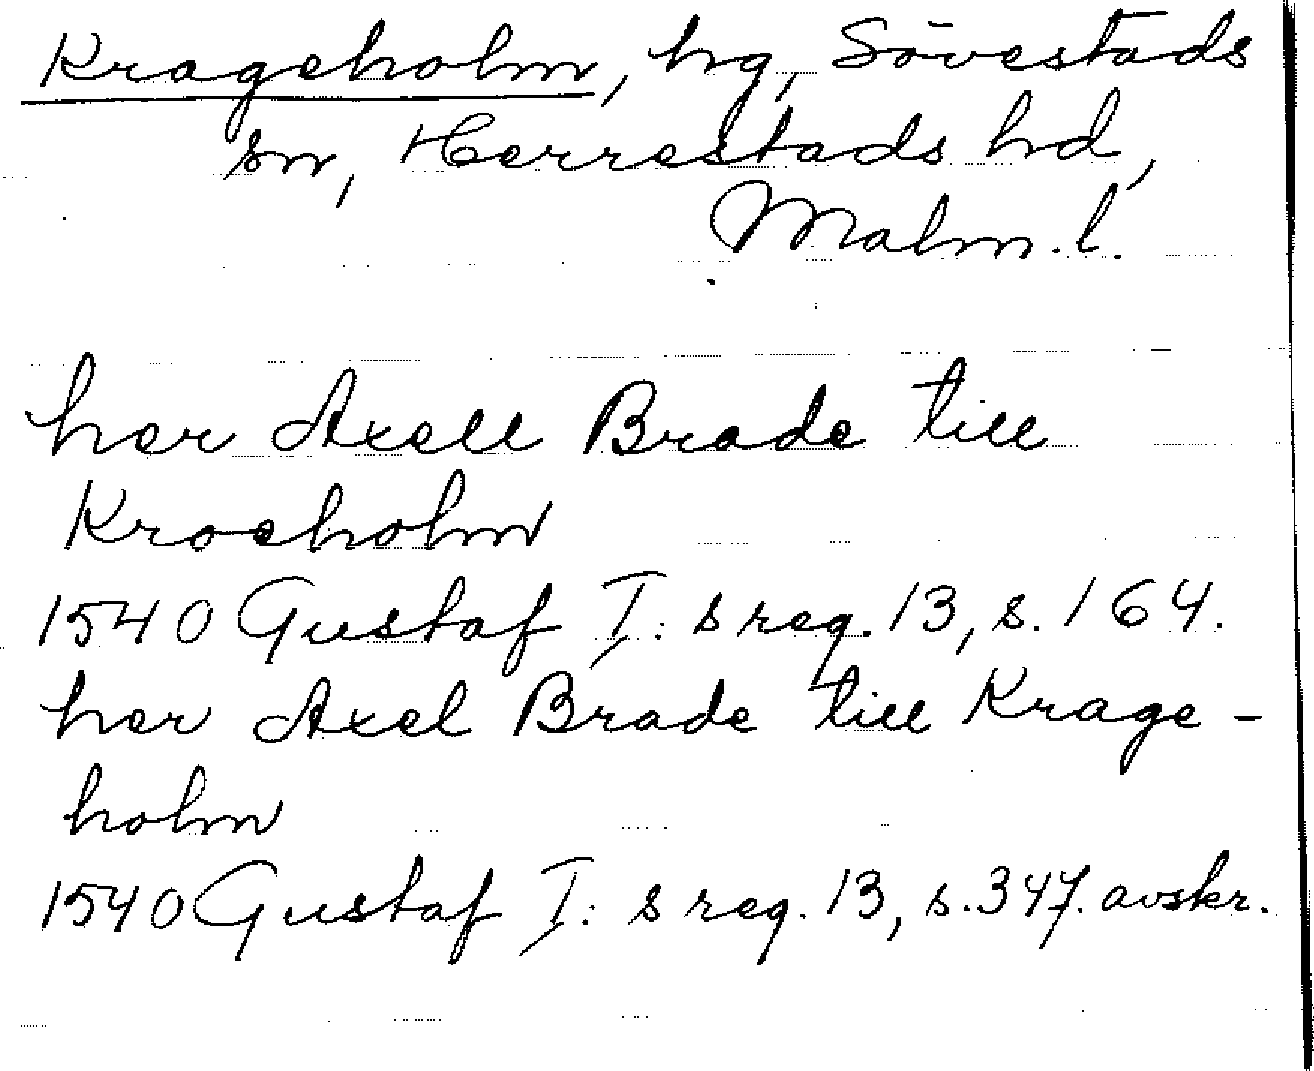 Krageholm, hg, Sövestads
sn, Herrestads hd,
Malm. l.
her Axell Brade till
Kroeholm
1540 Gustaf I: s reg. 13, s. 164.
her Axel Brade till Krage-
holm
1540 Gustaf I: s reg. 13, s. 347. avskr.